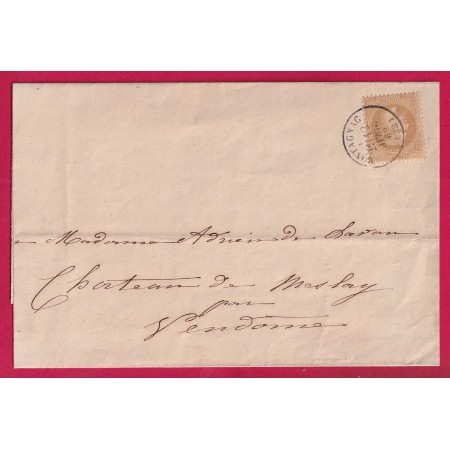 Madame Adrien de Saran
Chateau de Meslay
par
Vendôme